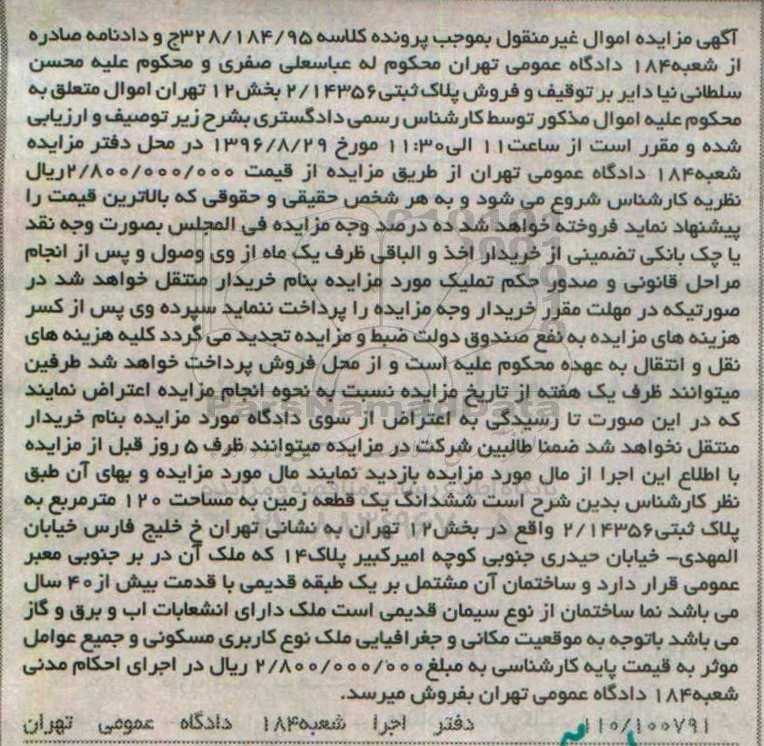 آگهی مزایده اموال غیرمنقول بموجب پرونده کلاسه ۳۲۸/۱۸۴/۹۵ج و دادنامه صادره
از شعبه۱۸۴ دادگاه عمومی تهران محکوم له عباسعلی صفری و محکوم علیه محسن
سلطانی نیا دایر بر توقیف و فروش پلاک ثبتی۲/۱۴۳۵۶ بخش۱۲ تهران اموال متعلق به
محکوم علیه اموال مذکور توسط کارشناس رسمی دادگستری بشرح زیر توصیف و ارزیابی
شده و مقرر است از ساعت۱۱ الی۱۱:۳۰ مورخ ۱۳۹۶/۸/۲۹ در محل دفتر مزایده
شعبه۱۸۴ دادگاه عمومی تهران از طریق مزایده از قیمت ۲/۸۰۰/۰۰۰/۰۰۰ریال
نظریه کارشناس شروع می شود و به هر شخص حقیقی و حقوقی که بالاترین قیمت را
پیشنهاد نماید فروخته خواهد شد ده درصد وجه مزایده فی المجلس بصورت وجه نقد
یا چک بانکی تضمینی از خریدار اخذ و الباقی ظرف یک ماه از وی وصول و پس از انجام
مراحل قانونی و صدور حکم تملیک مورد مزایده بنام خریدار منتقل خواهد شد در
صورتیکه در مهلت مقرر خریدار وجه مزایده را پرداخت ننماید سپرده وی پس از کسر
هزینه های مزایده به نفع صندوق دولت ضبط و مزایده تجدید می گردد کلیه هزینه های
نقل و انتقال به عهده محکوم علیه است و از محل فروش پرداخت خواهد شد طرفین
میتوانند ظرف یک هفته از تاریخ مزایده نسبت به نحوه انجام مزایده اعتراض نمایند
که در این صورت تا رسیدگی به اعتراض از سوی دادگاه مورد مزایده بنام خریدار
منتقل نخواهد شد ضمنا طالبین شرکت در مزایده میتوانند ظرف ۵ روز قبل از مزایده
با اطلاع این اجرا از مال مورد مزایده بازدید نمایند مال مورد مزایده و بهای آن طبق
نظر کارشناس بدین شرح است ششدانگ یک قطعه زمین به مساحت ۱۲۰ مترمربع به
پلاک ثبتی۲/۱۴۳۵۶ واقع در بخش۱۲ تهران به نشانی تهران خ خلیج فارس خیابان
المهدی- خیابان حیدری جنوبی کوچه امیرکبیر پلاک۱۴ که ملک آن در بر جنوبی معبر
عمومی قرار دارد و ساختمان آن مشتمل بر یک طبقه قدیمی با قدمت بیش از۴۰ سال
می باشد نما ساختمان از نوع سیمان قدیمی است ملک دارای انشعابات اب و برق و گاز
می باشد باتوجه به موقعیت مکانی و جغرافیایی ملک نوع کاربری مسکونی و جمیع عوامل
موثر به قیمت پایه کارشناسی به مبلغ۲/۸۰۰/۰۰۰/۰۰۰ ریال در اجرای احکام مدنی
شعبه۱۸۴ دادگاه عمومی تهران بفروش میرسد.
۱۱۰/۱۰۰۷۹۱ دفتر اجرا شعبه۱۸۴ دادگاه عمومی تهران
ParsNamadData